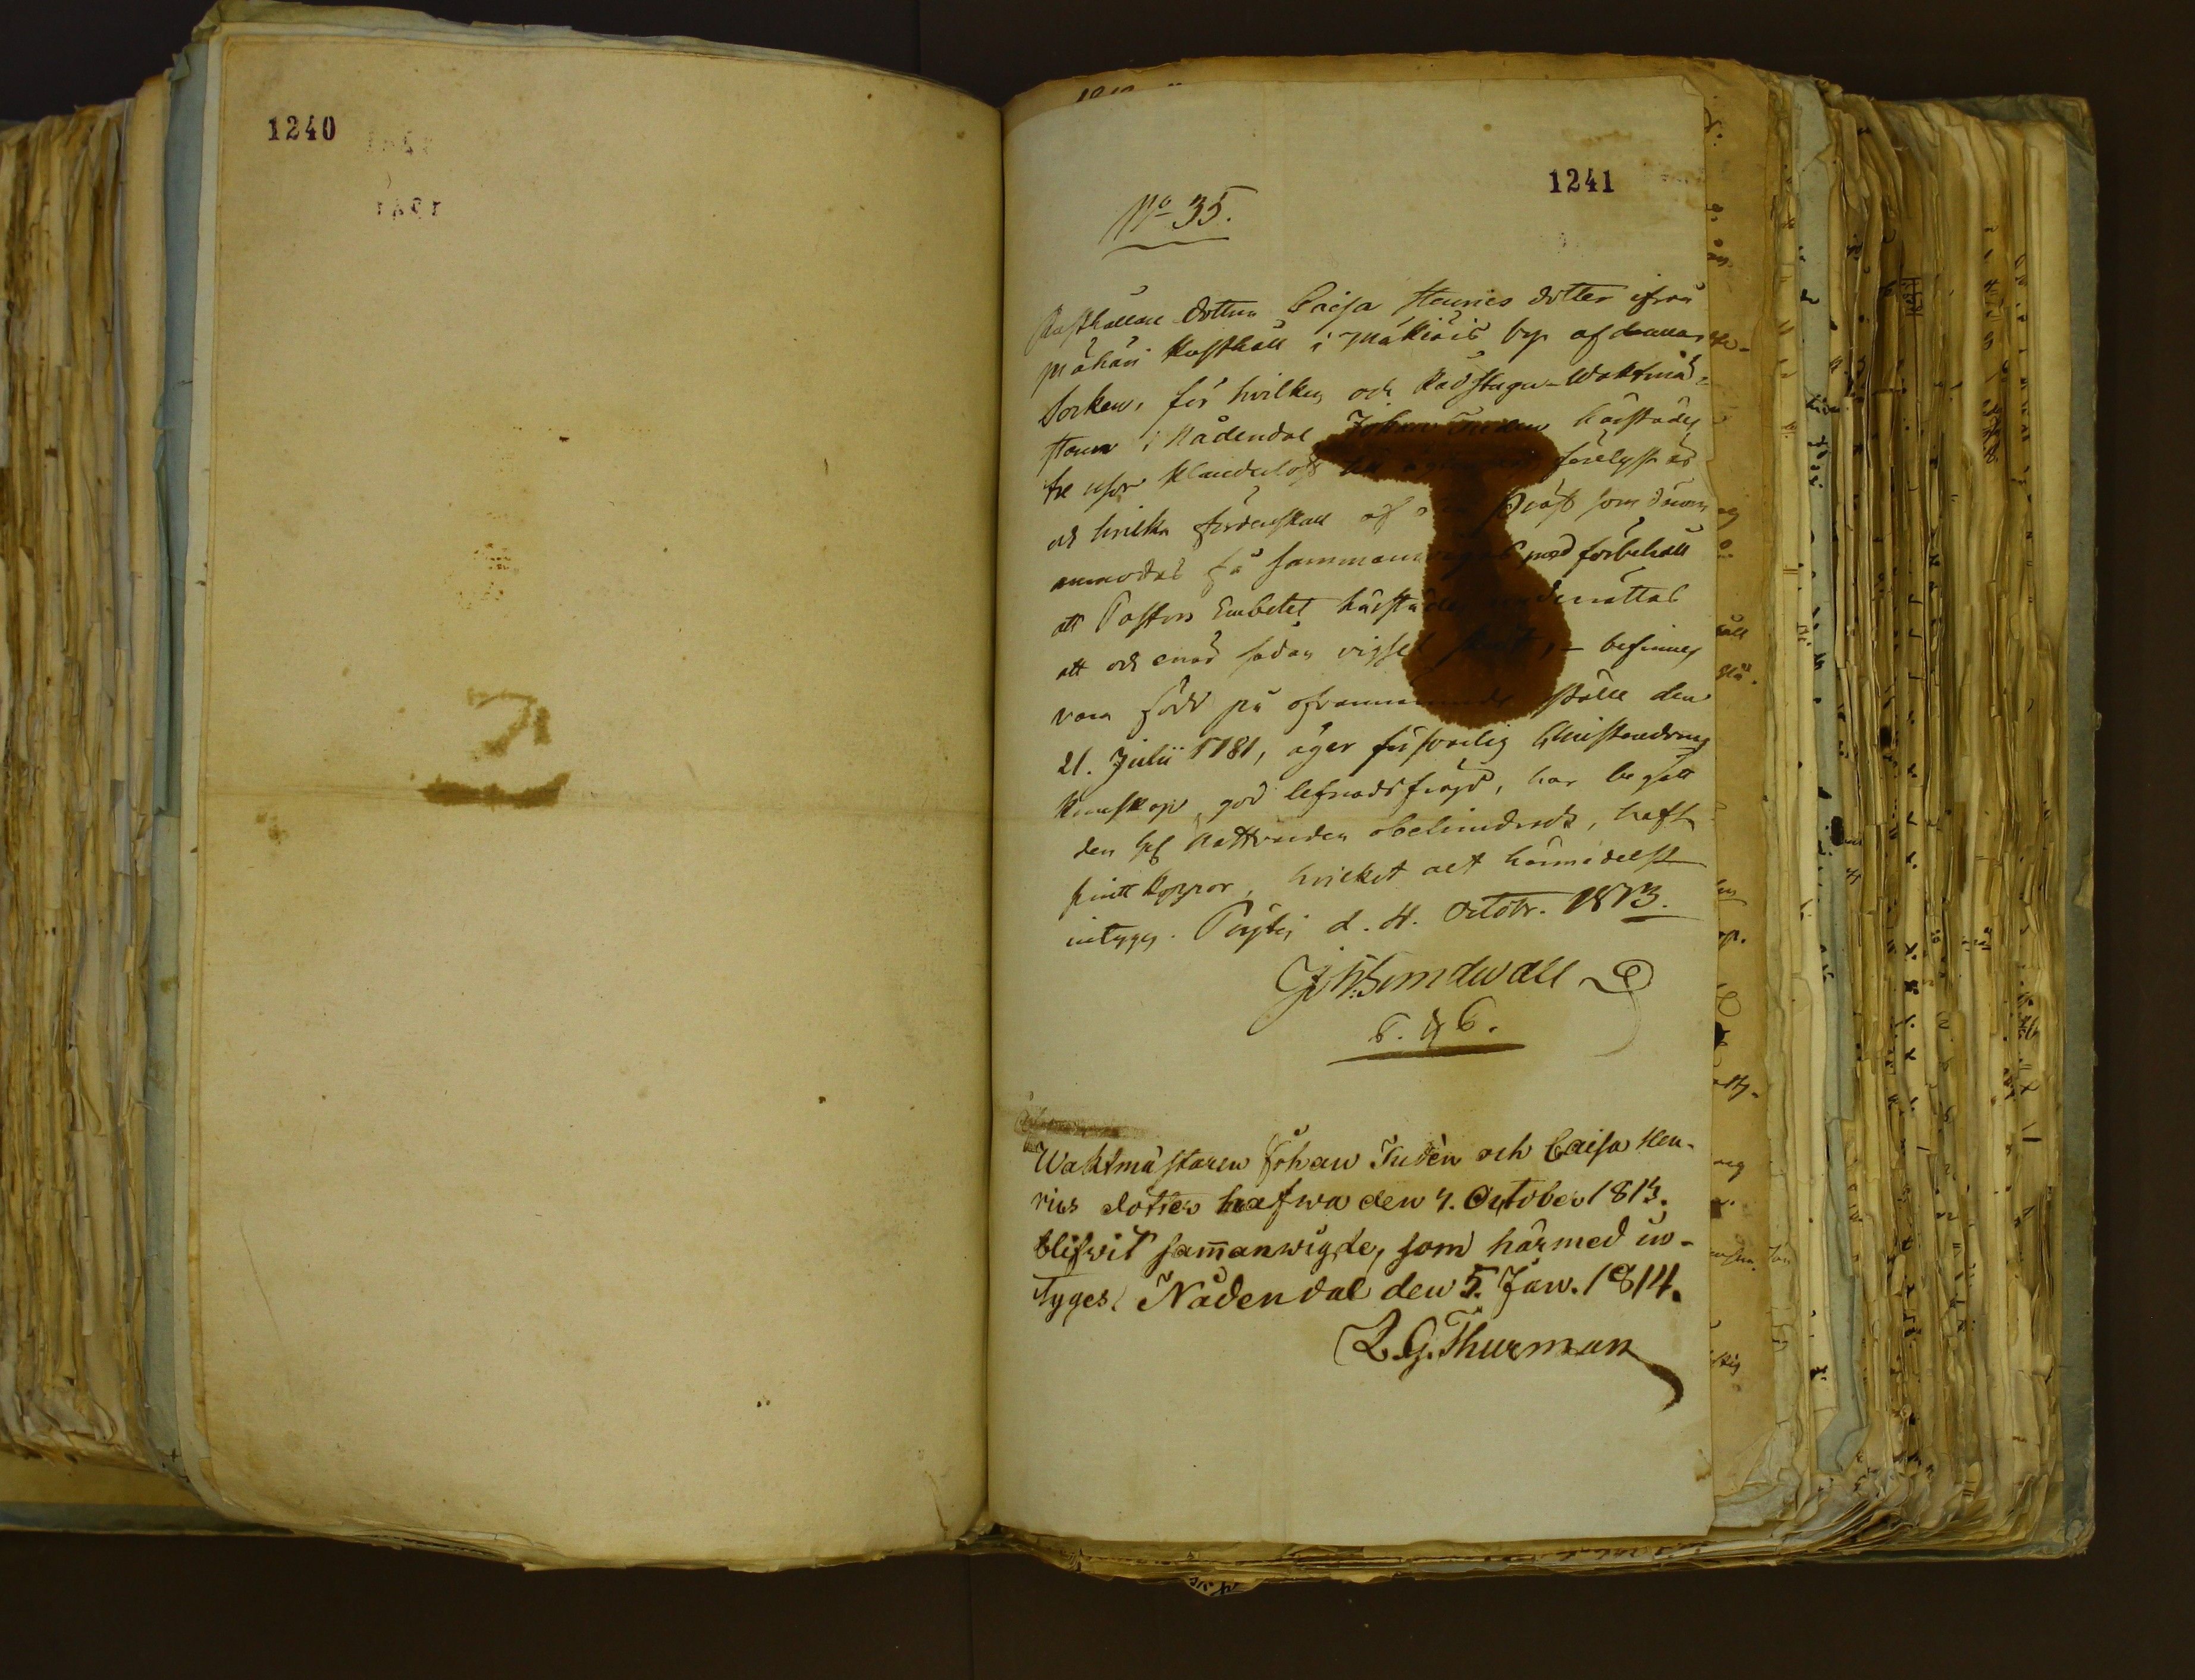 1240
1241
No 35.
Rusthållare dottren Caisa Henrics dotter ifrån
Rusthåll i by af denna
Socken, för hvilken och Rådstugu-Waktmä-
staren i Nådendal Johan Tudén härstädes
tre resor klanderlöst till lyst är
och hvilka fördenskull af Präst som därom
anmodas få sammanvigas med förbehåll
att Pastors Embetet härstädes underrättas
att och när sådan vigsel skedt, – befinnes
vara född på ofvannämnde ställe den
21. Julii 1781, äger försvarlig Christendoms
kunskap, god lefnadsfrägd, har begått
den Hel. Nattvarden obehindradt, haft
koppor, hvilket alt härmedelst
intygas. Pöytis d. 4. Octobr. 1813.
Waktmästaren Johan Tudén och Caisa Hen-
rics dotter hafwa den 7. October 1813.
blifwit sam̄anwigde, som härmed in-
tyges. Nådendal den 5. Jan. 1814.
L. G. Thurman